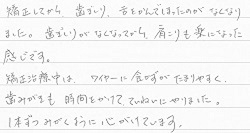 矯正してから、歯ぎしり、舌をかんでしまったのがなくなり
ました。歯ぎしりがなくなってから、肩こりも楽になった
感じです。
矯正治療中は、ワイヤーに食べカスがたまりやすく、
歯みがきも時間をかけて、ていねいにやりました。
1本ずつみがくように心がけています。